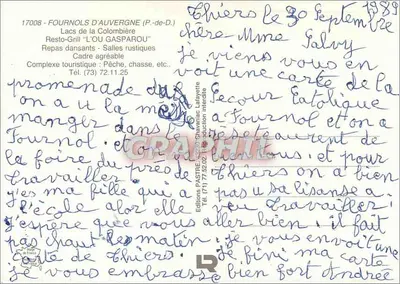 17008 - FOURNOLS D'AUVERGNE (P.-de-D.)
Lacs de la Colombière
Resto-Grill "L'OU GASPAROU"
Repas dansants - Salles rustiques
Cadre agréable
Complexe touristique : Pêche, chasse, etc..
Tél. (73) 72.11.25
Thiers le 30 Septembre 1989
chère Mme Salvy
je viens vous en
voit une carte de la
promenade du Secour Catolique
on a u la a Fournol et on a
manger dans le resteurent de
Fournol. et on
la foire du pres de Thiers on a bien
travailler. pas u sa lisanse
yes ma fille qui va Travailler.
l'ecole alor elle
j'espère que vous aller bien. il fait
pas chaut les matin je vous envoit une
Carte de Thiers. je fini ma carte
je vous embrass bien fort Andrée
Editions PASTRE
Tél. (71)
reproduction interdite
GRAPHIC
LR